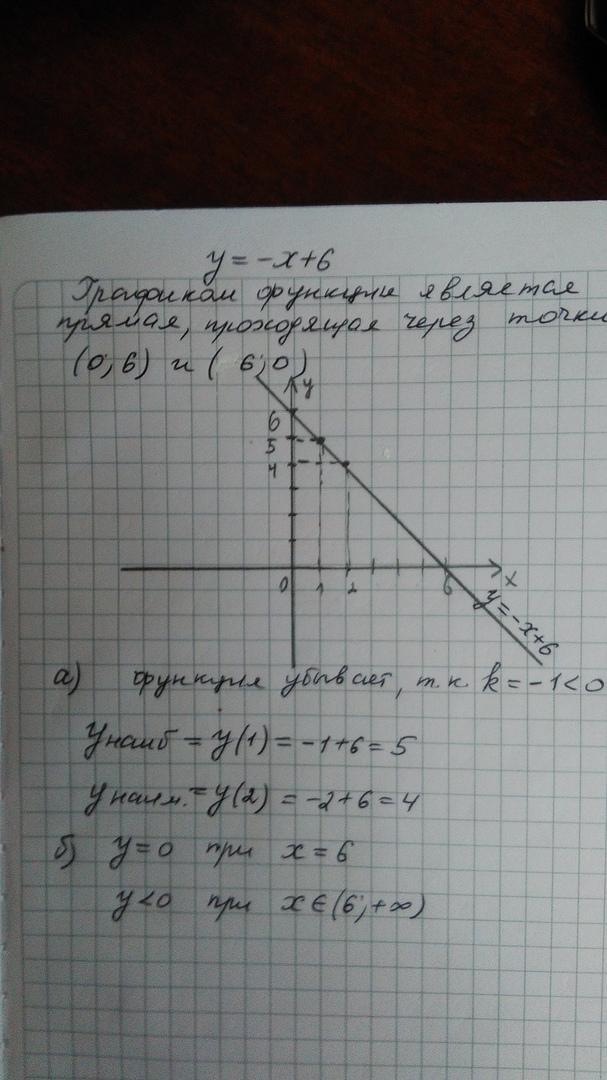 y = -x+6
Графиком функции является
прямая, проходящая через точки
(0; 6) и ( 6; 0)
y
6
5
4
0 1 2 6 x
y = -x+6
а) функция убывает, т.к. k = -1 < 0
Yнаиб = y(1) = -1+6 = 5
Yнаим. = y(2) = -2+6 = 4
б) y = 0 при x = 6
y < 0 при x ∈ (6; +∞)